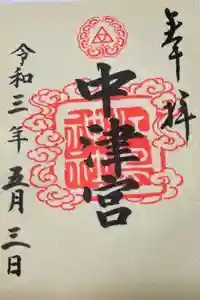 奉拝
中津宮
令和三年 五月 三日